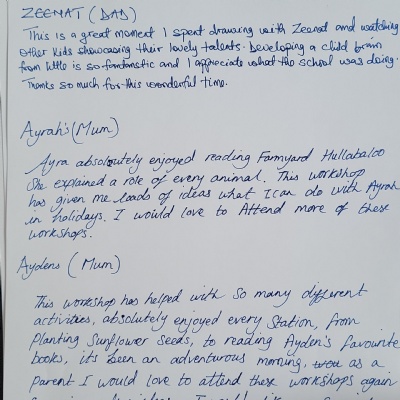 ZEENAT (DAD)
This is a great moment I spent drawing with Zeenat and watching
other kids showcasing their lovely talents. Developing a child brain
from little is so fantanstic and I appreciate what the school was doing.
Thanks so much for this wonderful time.
Ayrah's (Mum)
Ayra absoloutely enjoyed reading Farmyard Hullabaloo
She explained a role of every animal. This workshop
has given me loads of ideas what I can do with Ayrah
in holidays. I would love to Attend more of these
workshops.
Aydens (Mum)
This workshop has helped with so many different
activities, absolutely enjoyed every Station, from
Planting Sunflower Seeds, to reading Ayden's favourite
books, it's been an adventurous morning, as a
Parent I would love to attend these workshops again